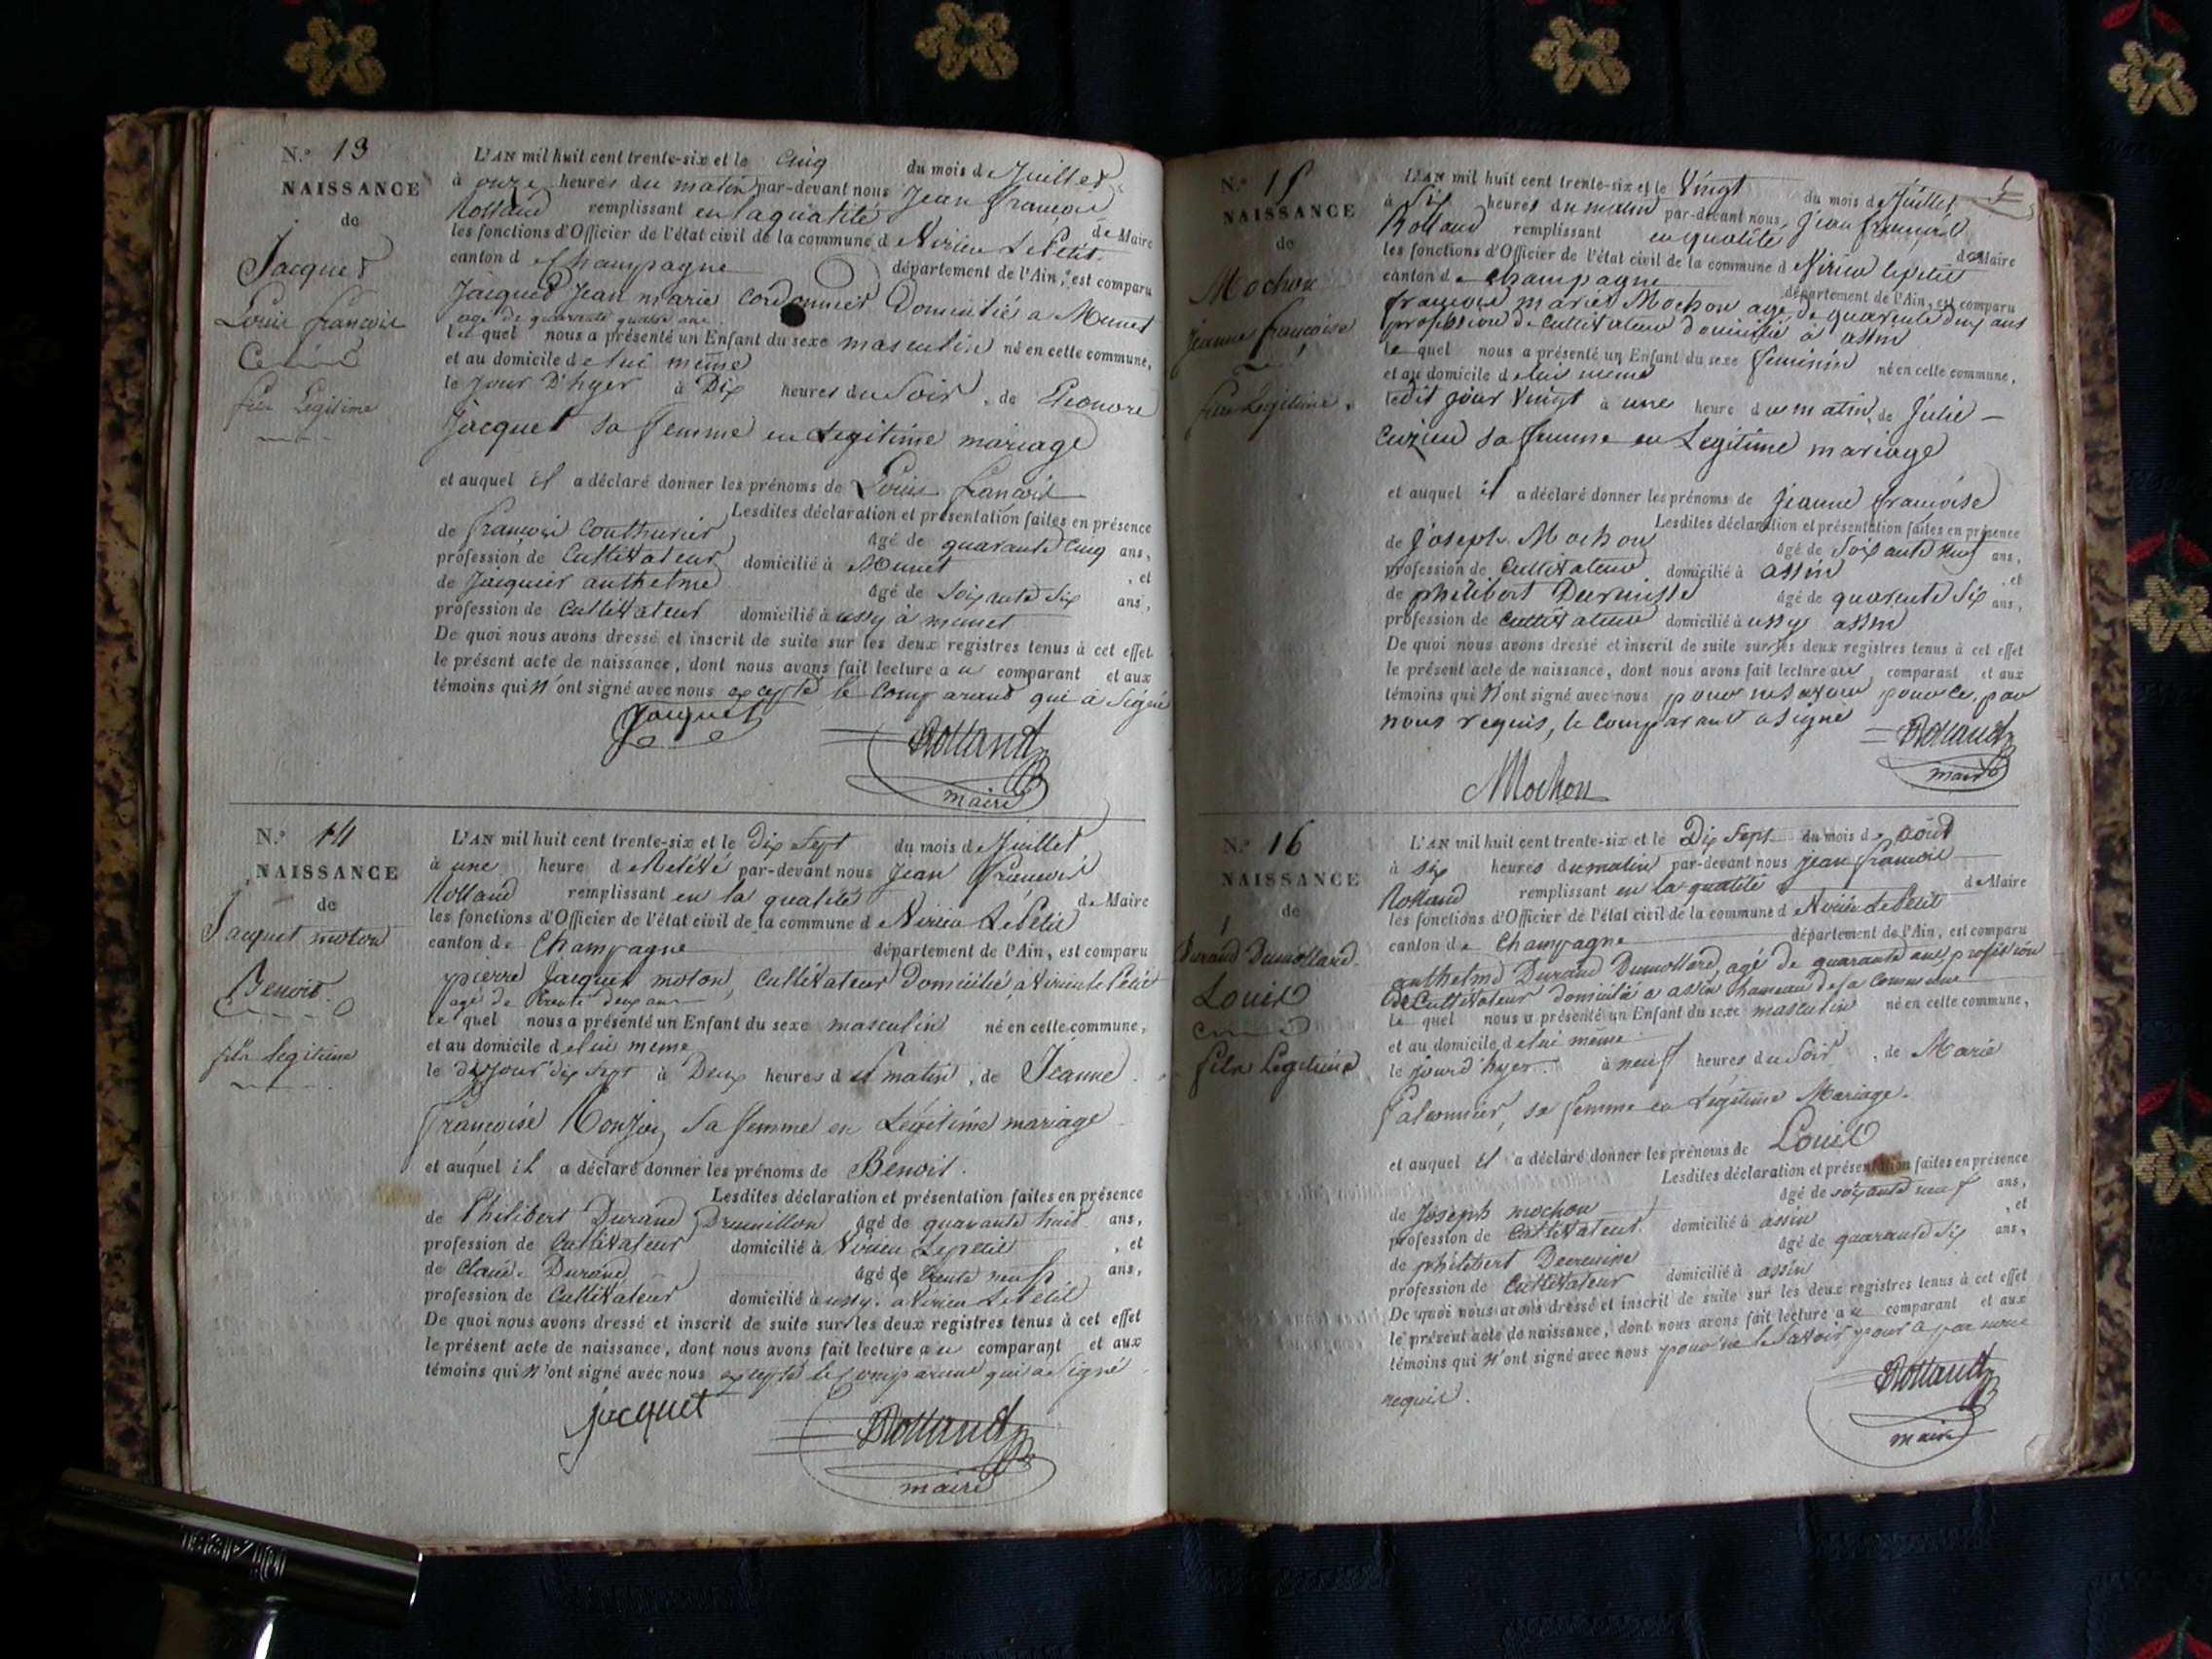 N.º 13
NAISSANCE
de
Jacquet
Louis françois
fils Légitime
L'AN mil huit cent trente-six et le Cinq du mois de Juillet
à onze heures du matin par-devant nous Jean françois
Rolland remplissant en la qualité de Maire
les fonctions d'Officier de l'état civil de la commune d Virieu Le Petit
canton de Champagne département de l'Ain, est comparu
Jacquet Jean marie Cordonnier Domicilié a Munet
age de quarante quatre ans
Le quel nous a présenté un Enfant du sexe masculin né en cette commune,
et au domicile de lui même
le Jour D'hyer à Dix heures du Soir, de Eléonore
Jacquet sa femme en Légitime mariage
et auquel il a déclaré donner les prénoms de Louis françois
Lesdites déclaration et présentation faites en présence
de françois Couthurier âgé de quarante Cinq ans,
profession de Cultivateur domicilié à Munet , et
de Jacquier anthelme âgé de Soixante Six ans,
profession de Cultivateur domicilié à ussy à munet
De quoi nous avons dressé et inscrit de suite sur les deux registres tenus à cet effet
le présent acte de naissance, dont nous avons fait lecture au comparant et aux
témoins qui N'ont signé avec nous excepté le Comparant qui à Signé
Jacquet
Rolland
maire
N.º 14
NAISSANCE
de
Jacquet moton
Benoit
fils legitime
L'AN mil huit cent trente-six et le Dix Sept du mois de Juillet
à une heure de par-devant nous Jean françois
Rolland remplissant en la qualité de Maire
les fonctions d'Officier de l'état civil de la commune d Virieu Le Petit
canton de Champagne département de l'Ain, est comparu
pierre Jacquet moton, Cultivateur Domicilié a Virieu le Petit
age de trente deux ans
le quel nous a présenté un Enfant du sexe masculin né en cette commune,
et au domicile de lui meme
le dit Jour dix sept à Deux heures du matin, de Jeanne
françoise Sa femme en Légitime mariage
et auquel il a déclaré donner les prénoms de Benoit.
Lesdites déclaration et présentation faites en présence
de Philibert Durand âgé de quarante huit ans,
profession de Cultivateur domicilié à Virieu Lepetit , et
de Claude Durand âgé de trente neuf ans,
profession de Cultivateur domicilié à ussy à Virieu Le Petit
De quoi nous avons dressé et inscrit de suite sur les deux registres tenus à cet effet
le présent acte de naissance, dont nous avons fait lecture au comparant et aux
témoins qui N'ont signé avec nous excepté le Comparant qui a Signé
jacquet
Rolland
maire
N.º 15
NAISSANCE
de
Mochon
jeanne françoise
fille Légitime
L'AN mil huit cent trente-six et le Vingt du mois de Juillet
à Six heures du matin par-devant nous Jean françois
Rolland remplissant en qualité de Maire
les fonctions d'Officier de l'état civil de la commune d Virieu lepetit
canton de Champagne département de l'Ain, est comparu
françois marie Mochon agé de quarente deux ans
profession de Cultivateur domicilié à assin
le quel nous a présenté un Enfant du sexe feminin né en cette commune,
et au domicile de lui meme
ledit jour Vingt à une heure du matin, de Julie
Cuzieu sa femme en Legitime mariage
et auquel il a déclaré donner les prénoms de Jeanne françoise
Lesdites déclaration et présentation faites en présence
de Joseph Mochon âgé de Soixante neuf ans,
profession de Cultivateur domicilié à assin , et
de philibert âgé de quarente Six ans,
profession de Cultivateur domicilié à ussy assin
De quoi nous avons dressé et inscrit de suite sur les deux registres tenus à cet effet
le présent acte de naissance, dont nous avons fait lecture au comparant et aux
témoins qui N'ont signé avec nous pour ne savoir pour ce par
nous requis, le Comparant a signé
Rolland
maire
Mochon
N.º 16
NAISSANCE
de
Durand Dumollard
Louis
fils Légitime
L'AN mil huit cent trente-six et le Dix Sept du mois d août
à six heures du matin par-devant nous jean françois
Rolland remplissant en la qualité de Maire
les fonctions d'Officier de l'état civil de la commune d Virieu Le Petit
canton de Champagne département de l'Ain, est comparu
anthelme Durand Dumollard, agé de quarante ans profession
de Cultivateur domicilié a assin hameau de sa Commune
Le quel nous a présenté un Enfant du sexe masculin né en cette commune,
et au domicile de lui même
le jour d'hyer à neuf heures du Soir, de Marie
sa femme en Légitime Mariage.
et auquel il a déclaré donner les prénoms de Louis
Lesdites déclaration et présentation faites en présence
de Joseph mochon âgé de soixante neuf ans,
profession de Cultivateur domicilié à assin , et
de philibert âgé de quarante Six ans,
profession de Cultivateur domicilié à assin
De quoi nous avons dressé et inscrit de suite sur les deux registres tenus à cet effet
le présent acte de naissance, dont nous avons fait lecture au comparant et aux
témoins qui N'ont signé avec nous pour ne le Savoir pour ce par nous
requis.
Rolland
maire